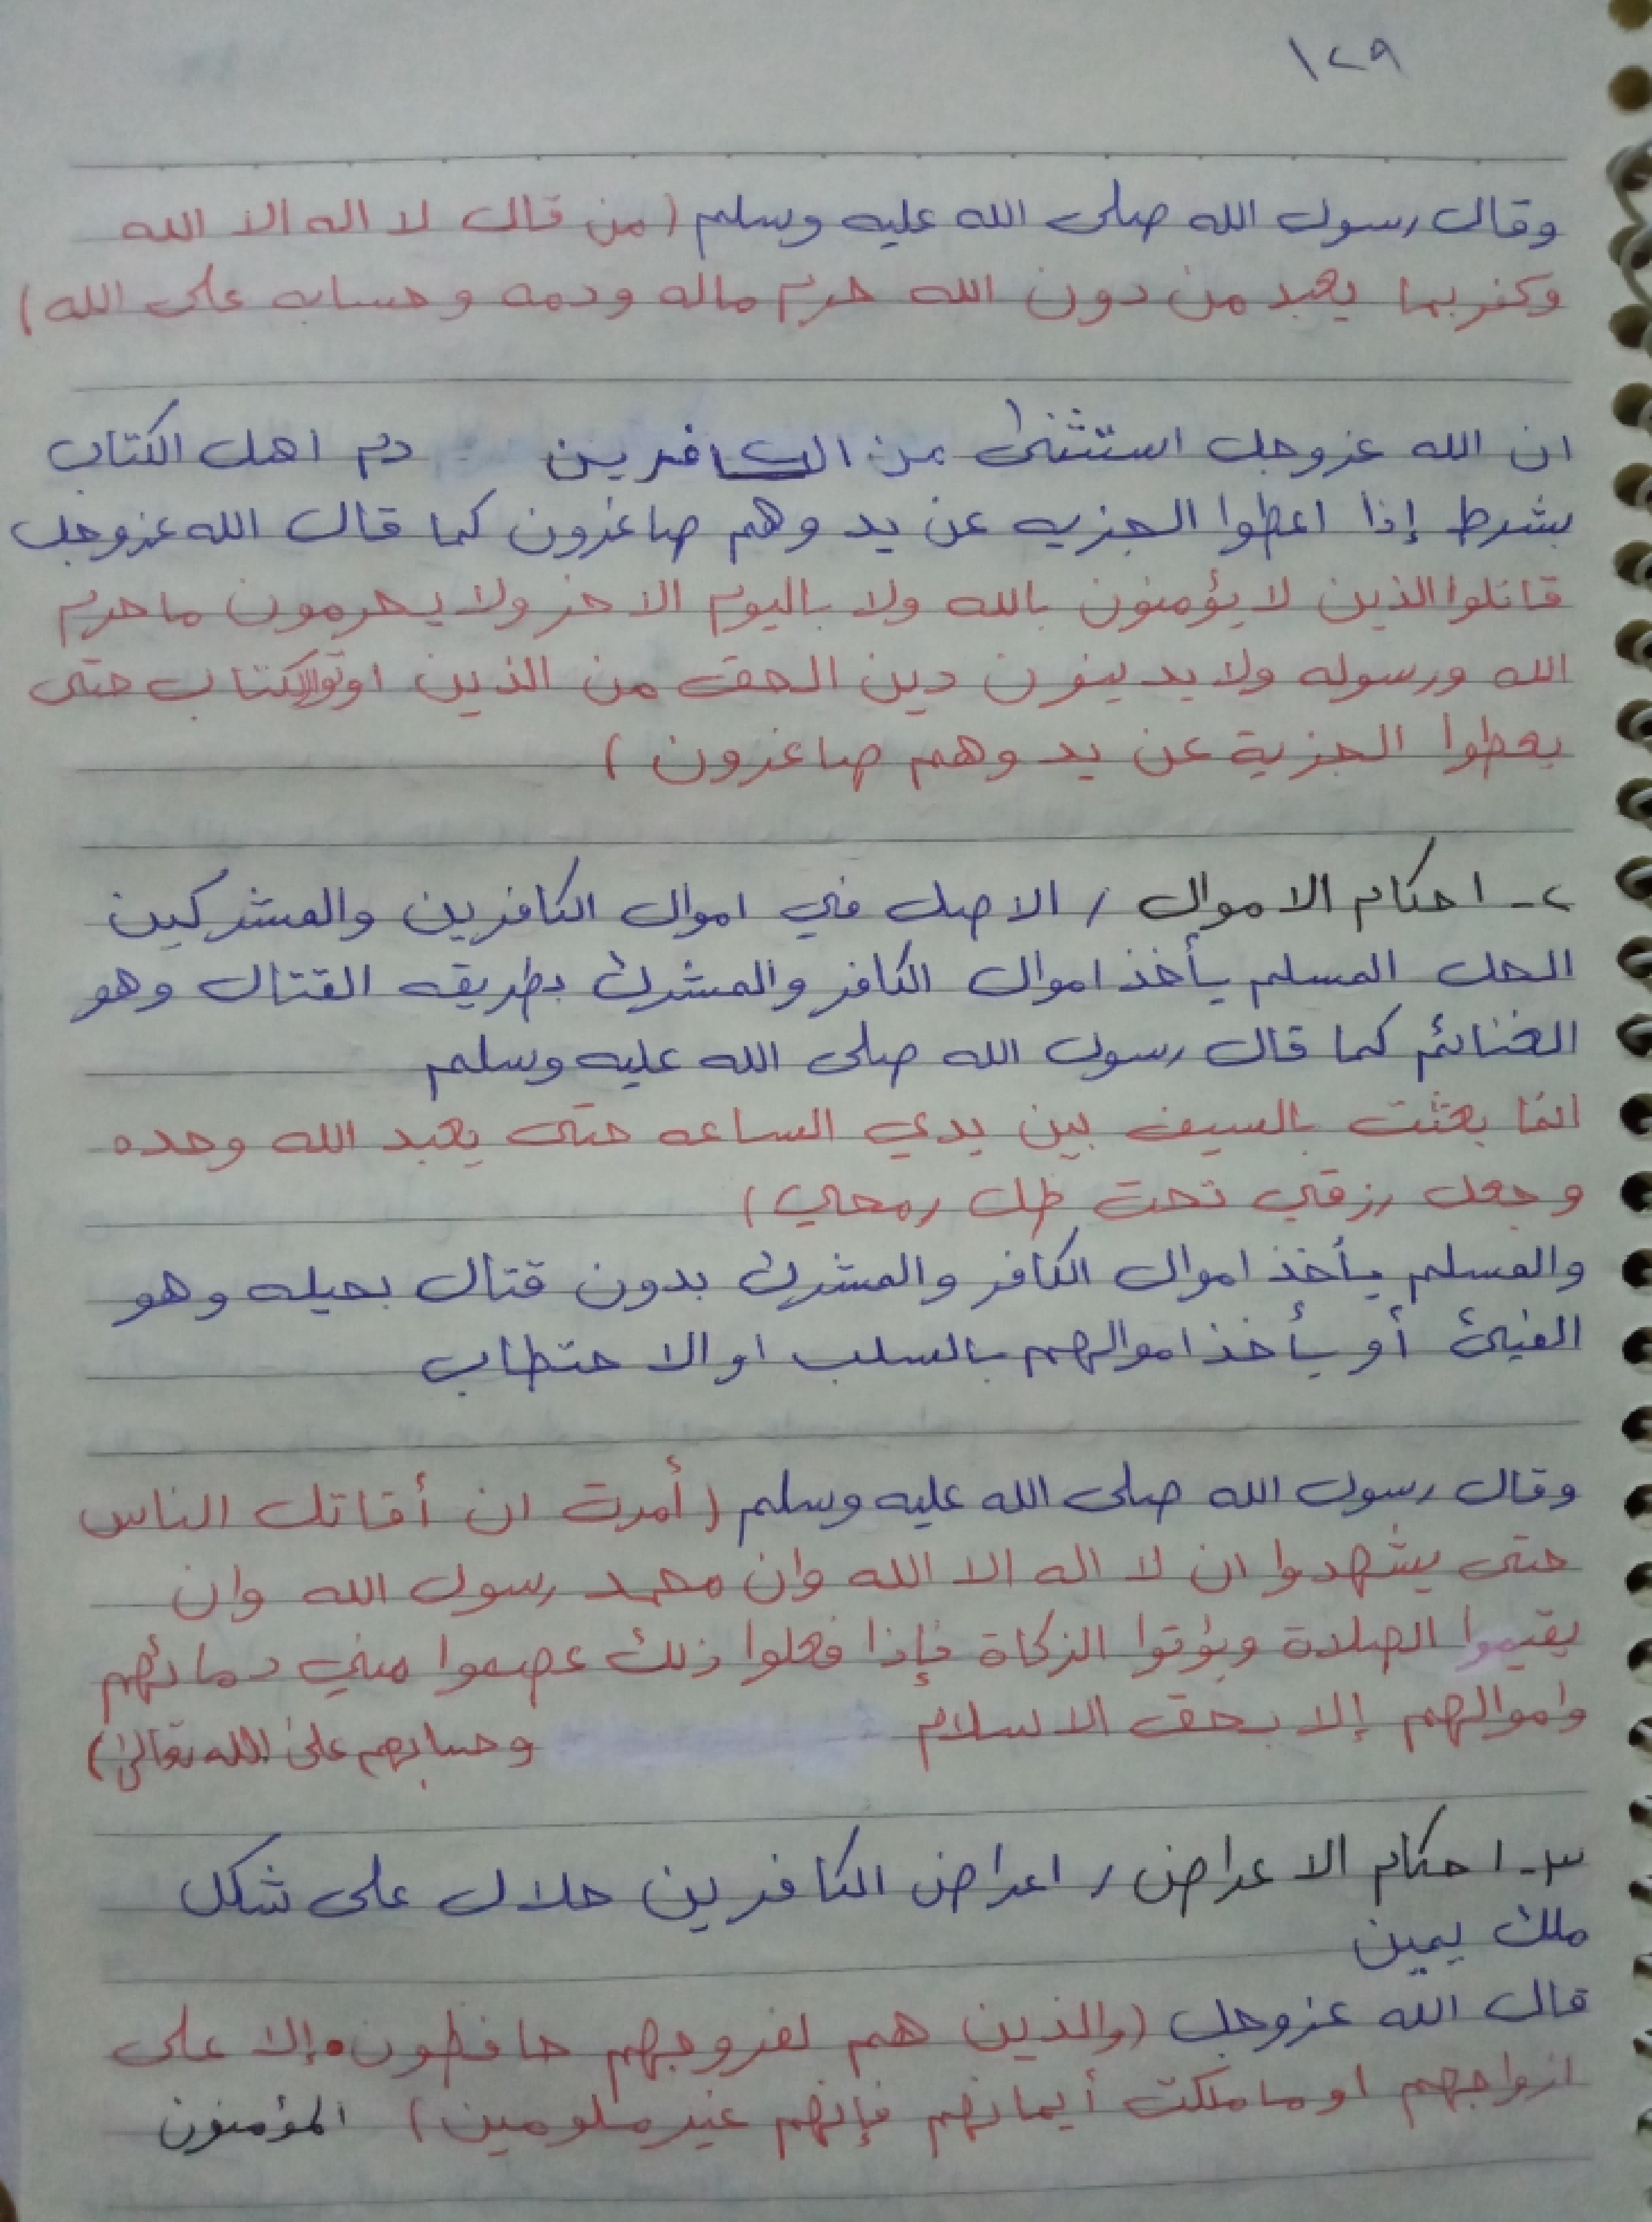 ١٢٩
وقال رسول الله صلى الله عليه وسلم (من قال لا اله الا الله
وكفر بما يعبد من دون الله حرم ماله ودمه وحسابه على الله)
ان الله عزوجل استثنى من الكافرين دم اهل الكتاب
بشرط إذا اعطوا الجزيه عن يد وهم صاغرون كما قال الله عزوجل
قاتلوا الذين لا يؤمنون بالله ولا باليوم الاخر ولا يحرمون ما حرم
الله ورسوله ولا يدينون دين الحق من الذين اوتوا الكتاب حتى
يعطوا الجزية عن يد وهم صاغرون)
٢- احكام الاموال / الاصل في اموال الكافرين والمشركين
الحل المسلم يأخذ اموال الكافر والمشرك بطريقه القتال وهو
الغنائم كما قال رسول الله صلى الله عليه وسلم
انما بعثت بالسيف بين يدي الساعه حتى يعبد الله وحده
وجعل رزقي تحت ظل رمحي)
والمسلم يأخذ اموال الكافر والمشرك بدون قتال بحيله وهو
الفيئ أو يأخذ اموالهم بالسلب او الاحتطاب
وقال رسول الله صلى الله عليه وسلم (أمرت ان أقاتل الناس
حتى يشهدوا ان لا اله الا الله وان محمد رسول الله وان
يقيموا الصلاة ويؤتوا الزكاة فإذا فعلوا ذلك عصموا مني دمائهم
واموالهم إلا بحق الاسلام وحسابهم على الله تعالى)
٣- احكام الاعراض / اعراض الكافرين حلال على شكل
ملك يمين
قال الله عزوجل (والذين هم لفروجهم حافظون • إلا على
ازواجهم او ما ملكت أيمانهم فإنهم غير ملومين) المؤمنون